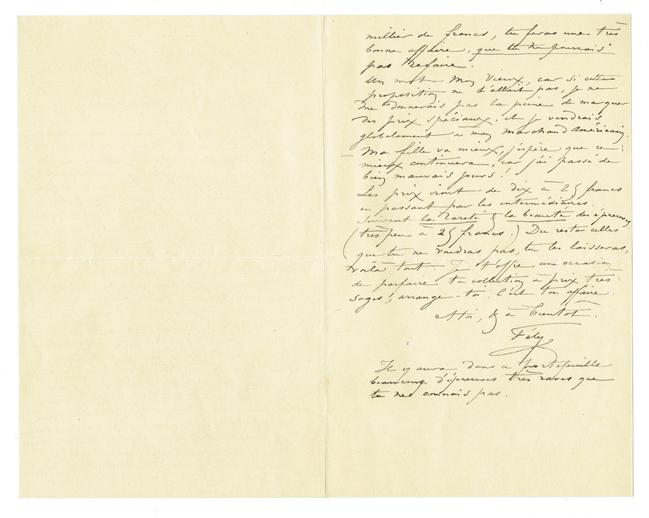 millier de francs, tu feras une très
bonne affaire, que tu ne pourrais
pas refaire.
Un mot mon vieux, car si cette
proposition ne t'allait pas, je ne
me donnerais pas la peine de marquer
des prix spéciaux. & je vendrais
globalement à mon marchand américain.
Ma fille va mieux, j'espère que ce
mieux continuera, car j'ai passé de
bien mauvais jours!
Les prix iront de dix à 25 francs
en passant par les intermédiaires.
Suivant la rareté & la beauté des épreuves
(très peu à 25 francs.) Du reste celles
que tu ne voudras pas, tu les laisseras,
voilà tout. Je t'offre une occasion
de parfaire ta collection à prix très
sages, arrange-toi. C'est ton affaire.
A toi, & à bientôt.
Fély
Il y aura dans ce portefeuille
beaucoup d'épreuves très rares que
tu ne connais pas.